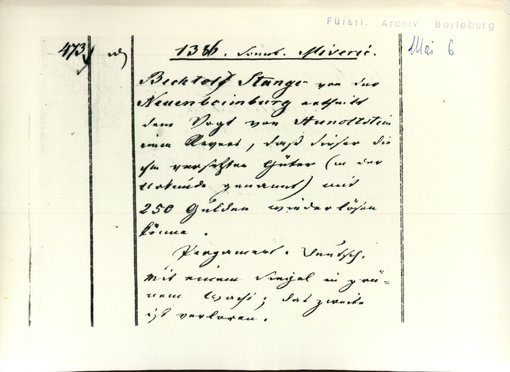 Fürstl. Archiv Berleburg
Mai 6
473. 1386. Sonnt. Miseric.
Bechtolf Stange von der
Neuenbeimburg ertheilt
dem Vogt von Arnoltstein
einen Revers, daß dieser die
ihm versetzten Güter (in der
Urkunde genannt) mit
250 Gulden wiederlösen
könne.
Pergament. Deutsch.
Mit einem Siegel in grü-
nem Wachs; das zweite
ist verloren.